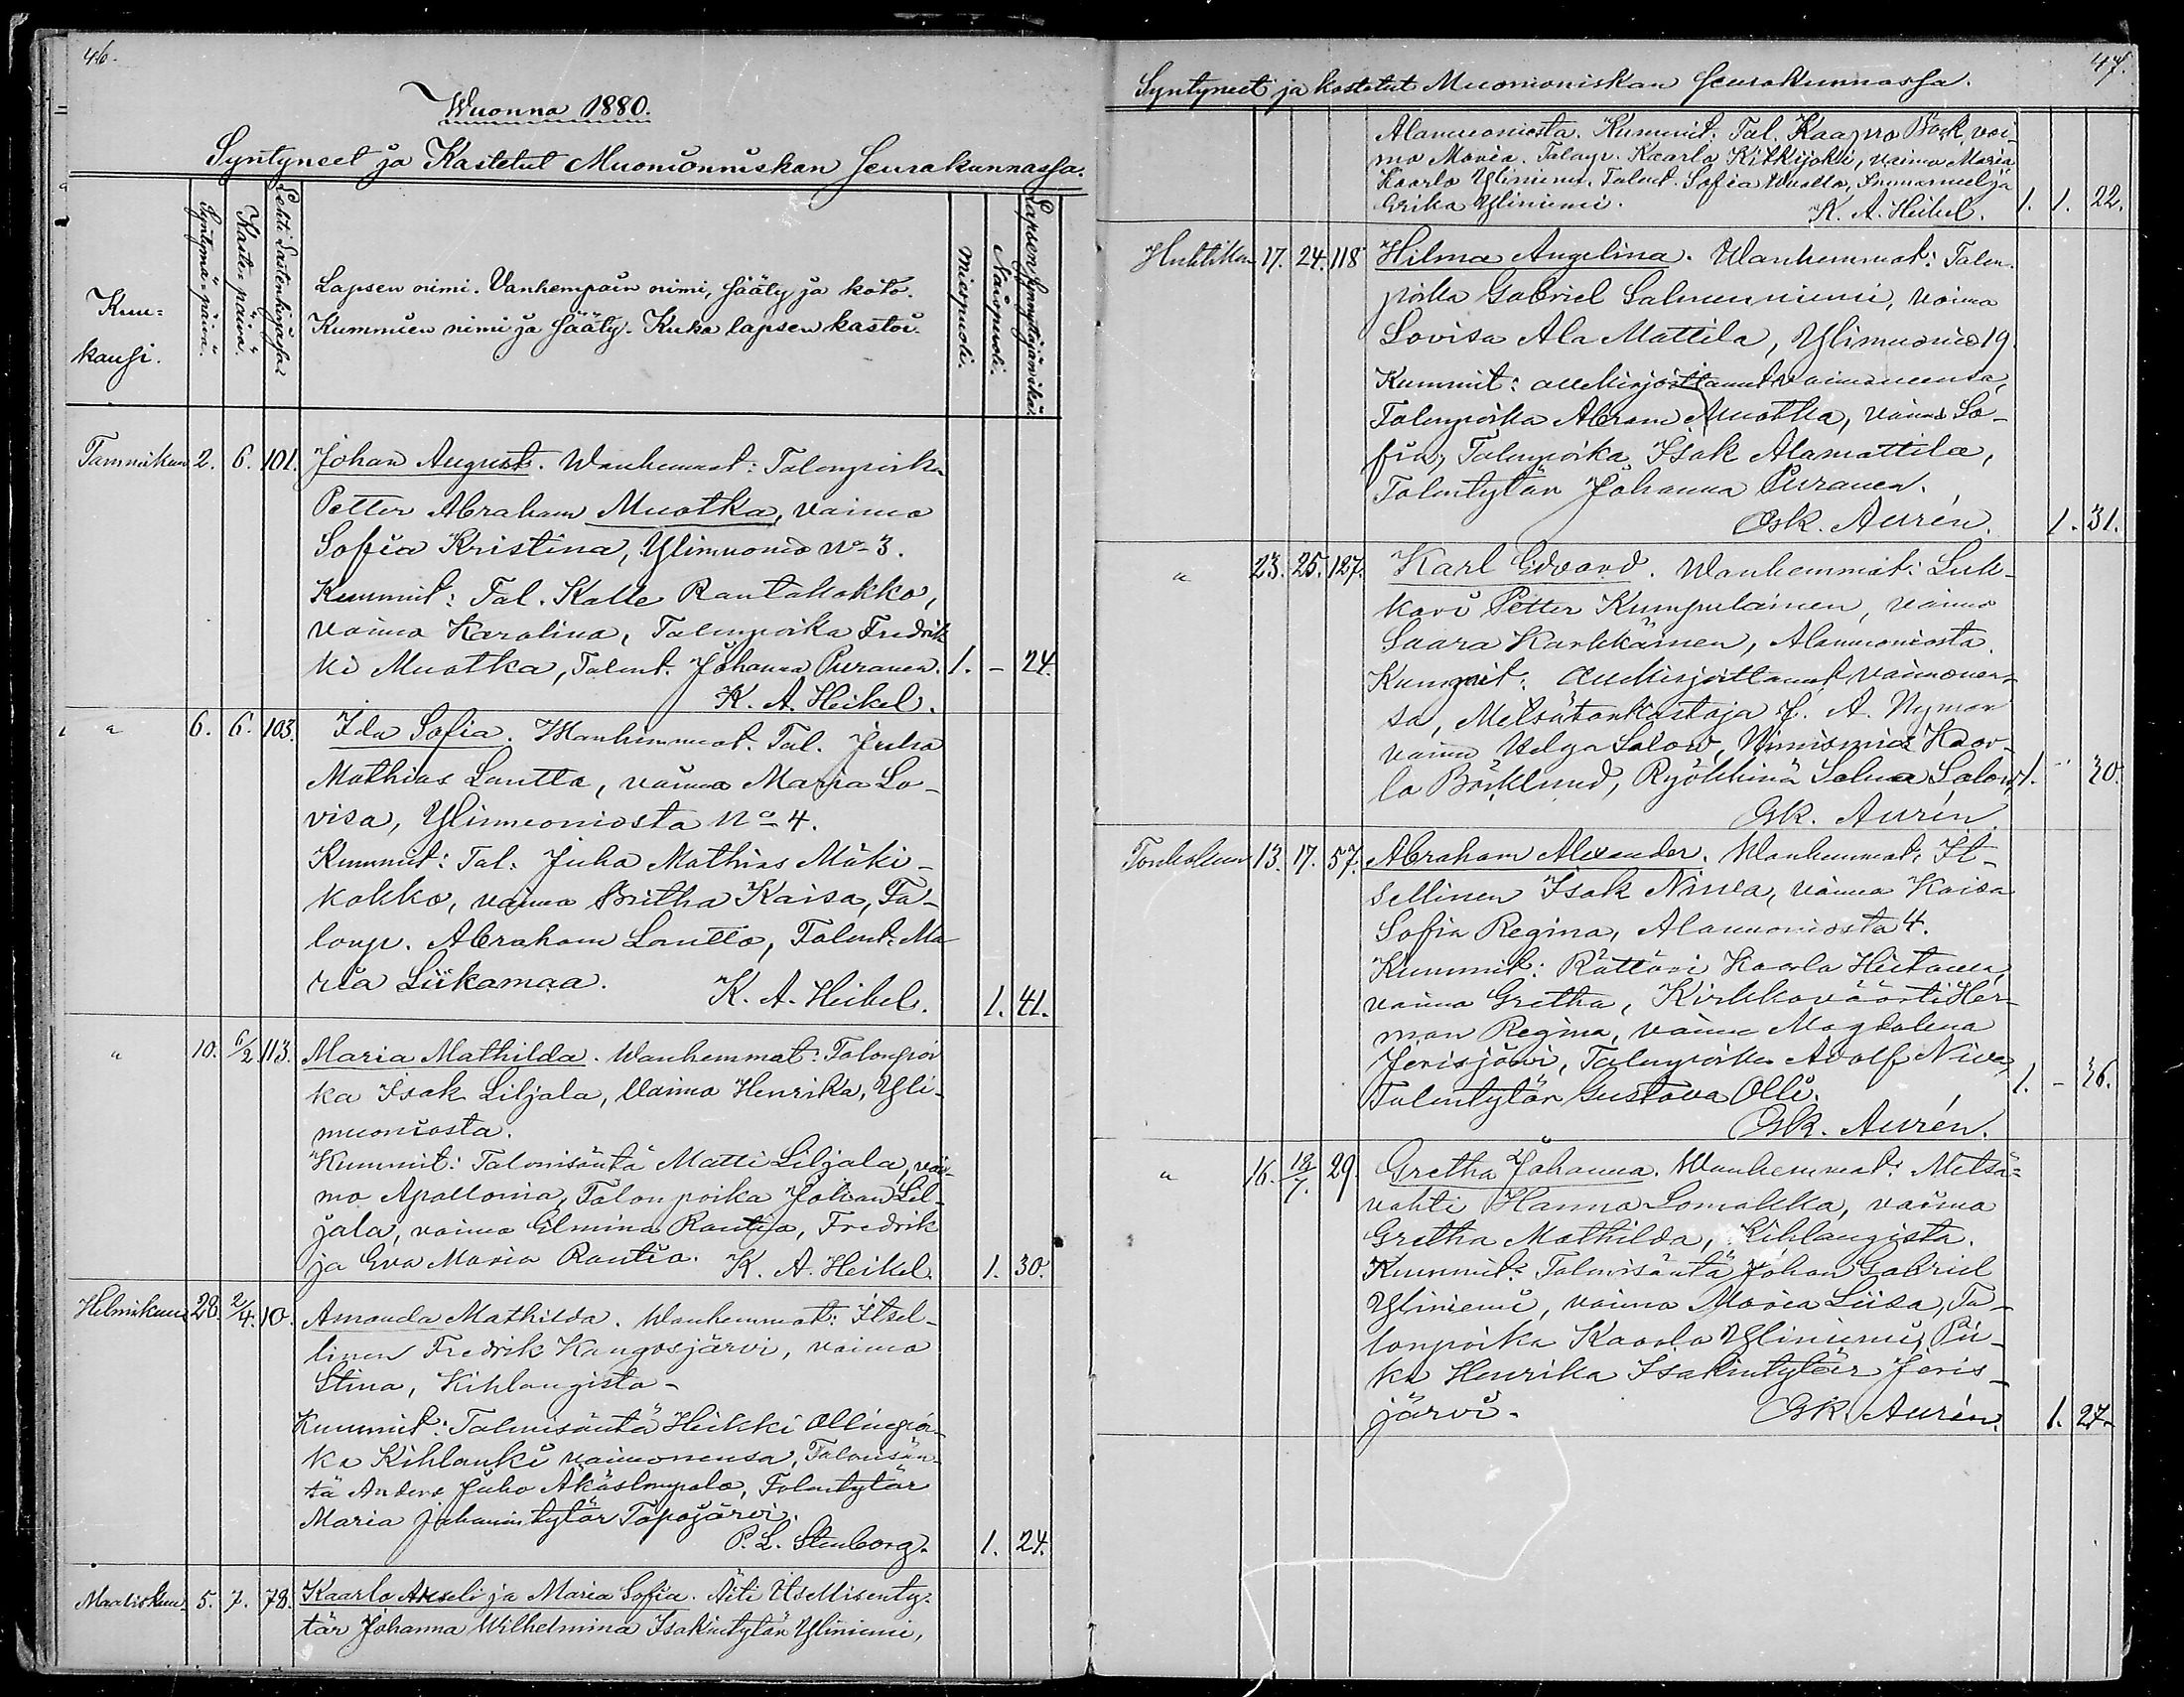 46.
Wuonna 1880.
Syntyneet ja Kastetut Muonionniskan Seurakunnassa.
Kuu=
kausi.
Syntymä=päivä.
Kaste=päivä.
Lehti Lastenkirjassa
Lapsen nimi. Vanhempain nimi, sääty ja koto.
Kummien nimi ja sääty. Kuka lapsen kastoi.
Miespuoli.
Naispuoli.
Lapsensynnyttäjän ikä.
Tammikuu 2. 6. 101. Johan August. Wanhemmat: Talonpoika
Petter Abraham Muotka, vaimo
Sofia Kristina, Ylimuonio No 3.
Kummit: Tal. Kalle Rantakokko,
vaimo Karolina, Talonpoika Fredrik
ki Muotka, Talont. Johanna Puranen. 1. - 24.
K. A. Heikel.
" 6. 6. 103. Ida Sofia. Wanhemmat. Tal. Juho
Mathias Lautta, vaimo Maria Lo-
visa, Ylimuoniosta No 4.
Kummit: Tal. Juha Mathias Mäki-
kokko, vaimo Britha Kaisa, Ta-
lonp. Abraham Lautta, Talont. Ma
ria Liikamaa. K. A. Heikel. 1. 41.
" 10. 6/2 113. Maria Mathilda. Wanhemmat: Talonpoi
ka Isak Liljala, Vaimo Henrika, Yli-
muoniosta.
Kummit: Talonisäntä Matti Liljala, vai-
mo Apollonia, Talonpoika Johan Lil-
jala, vaimo Elmina Rautio, Fredrik
ja Eva Maria Rautio. K. A. Heikel. 1. 30.
Helmikuu 28. 2/4. 10. Amanda Mathilda. Wanhemmat: Itsel-
linen Fredrik Kangosjärvi, vaimo
Stina, Kihlangista-
Kummit: Talonisäntä Heikki Ollinpoi-
ka Kihlanki vaimonensa, Talonisän-
tä Anders Juho Äkäslompolo, Talontytär
Maria Juhanintytär Tapojärvi.
P. L. Stenborg. 1. 24.
Maaliskuu 5. 7. 78. Kaarlo Akseli ja Maria Sofia. Äiti Itsellisenty-
tär Johanna Wilhelmina Isakintytär Yliniemi,
47.
Syntyneet ja kastetut Muonioniskan Seurakunnassa.
Alamuoniosta. Kummit: Tal. Kaapro Back, vai-
mo Maria. Talonp. Kaarlo Kitkijoki, vaimo Maria
Kaarlo Yliniemi. Talont. Sofia
Erika Yliniemi. K. A. Heikel. 1. 1. 22.
Huhtikuu 17. 24. 118 Hilma Angelina. Wanhemmat: Talon-
poika Gabriel Salmenniemi, vaimo
Lovisa Ala Mattila, Ylimuonio 19.
Kummit: allekirjoittanut vaimoneensa,
Talonpoika Abram Muotka, vaimo So-
fia, Talonpoika Isak Alamattila,
Talontytär Johanna Puranen.
Osk. Aurén. 1. 31.
" 23. 25. 127. Karl Edvard. Wanhemmat: Luk-
kari Petter Kumpulainen, vaimo
Saara Karkkainen, Alamuoniosta.
Kummit: Allekirjoittanut vaimonen-
sa, Metsätarkastaja J. A. Nyman
vaimo Helga Salow, Nimismies Kaar-
lo Björklund, Ryökkinä Selma Salow, 1. " 30.
Osk. Aurén.
Toukokuu 13. 17. 57. Abraham Alexander. Wanhemmat: It-
sellinen Isak Niva, vaimo Kaisa
Sofia Regina, Alamuoniosta 4.
Kummit: Rättäri Kaarlo Hietanen,
vaimo Gretha, Kirkkoväärti Her-
man Regina, vaimo Magdalena
Jerisjärvi, Talonpoika Adolf Niva,
Talontytär Gustava Olli. 1. - 26.
Osk. Aurén.
" 16. 18/7. 29. Gretha Johanna. Wanhemmat: Metsä=
vahti Hannu Lomakka, vaimo
Gretha Mathilda, Kihlangista.
Kummit: Talonisäntä Johan Gabriel
Yliniemi, vaimo Maria Liisa, Ta-
lonpoika Kaarlo Yliniemi, Pii-
ka Henrika Isakintytär Jeris-
järvi. Osk. Aurén. 1. 27.